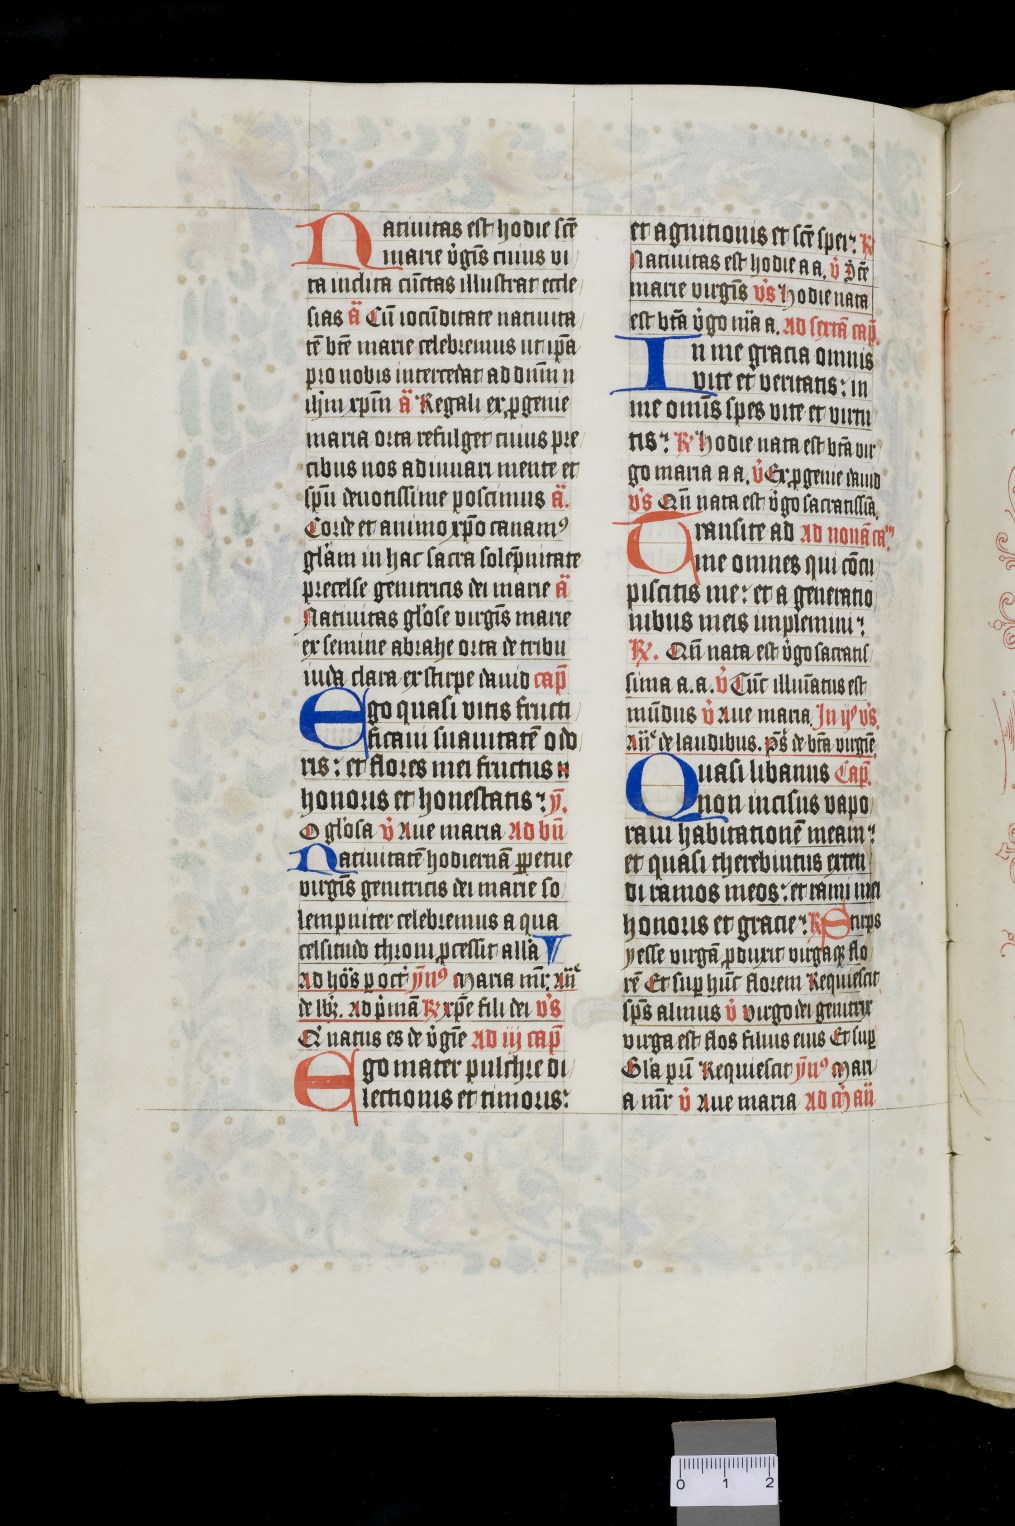 Natiuitas est hodie scē
marie v̇gīs cuius vi
ta inclita cūctas illustrat eccle
sias ā Cū iocūditate natiuita
tē btē marie celebremus ut ip̄a
pro nobis intercedat ad dn̄m n
ih̄m xp̄m ā Regali ex ꝓgenie
maria orta refulget cuius pre
cibus nos adiuuari mente et
sp̄u deuotissime poscimus ā.
Corde et animo xp̄o canamꝰ
gl̄am in hac sacra solēpnitate
precelse genitricis dei marie ā
Natiuitas gl̄ose virgīs marie
ex semine abrahe orta de tribu
iuda clara ex stirpe dauid cap̄
Ego quasi vitis fructi
ficaui suauitatē odo
ris: et flores mei fructus
honoris et honestatis: y.
O gl̄osa v̇ Aue maria Ad bn̄
Natiuitatē hodiernā ꝑpetue
virgīs genitricis dei marie so
lempniter celebremus a qua
celsitudo throni ꝓcessit all̄a V
Ad hōs ꝑ oct̄ ym̄ꝰ Maria mr̄: An̄
de lb̄. Ad p̄mā ℟ xp̄e fili dei v̄s
Qi natus es de v̇gīe Ad iij cap̄
Ego mater pulchre di
lectionis et timoris:
et agnitionis et scē spei: ℟
Natiuitas est hodie a a. v̇ Scē
marie virgīs v̄s Hodie nata
est btā v̇go m̄a a. Ad sextā cap̄.
In me gracia omnis
vite et veritatis: in
me om̄is spes vite et virtu
tis: ℟ Hodie nata est btā vir
go maria a a. v̇ Ex ꝓgenie dauid
v̄s Qn̄ nata est v̇go sacratissīa.
Transite ad Ad nonā ca
me omnes qui cōcu
piscitis me: et a generatio
nibus meis implemini:
℟. Qn̄ nata est v̇go sacratis
sima a. a. v̇ Cūt illuīatus est
mūdus v̇ Aue maria. In ijs v̄s.
An̄ de laudibus. ps̄ de btā virgīe.
Quasi libanus Cap̄.
non incisus vapo
raui habitationē meam:
et quasi therebintus exten
di ramos meos: et rami mei
honoris et gracie: ℟ Stirps
yesse virgā ꝓduxit virgaqꝫ flo
rē Et suꝑ hūc florem Requiescit
sp̄s almus v̇ Virgo dei genitrix
virga est flos filius eius Et suꝑ
Gl̄a pri Requiescit ym̄ꝰ Mari
a mr̄ v̇ Aue maria Ad Mān